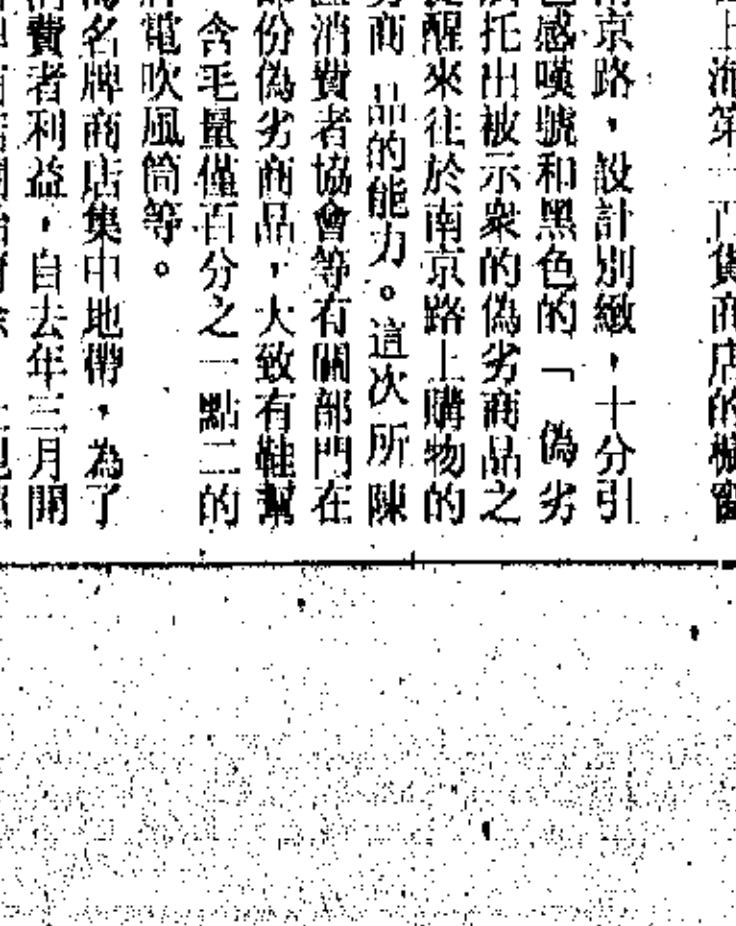 上海第一百貨商店的櫥窗
京路，設計別緻，十分引
感嘆號和黑色的「偽劣
托出被示衆的偽劣商品之
醒來往於南京路上購物的
商品的能力。這次所陳
消費者協會等有關部門在
份偽劣商品，大致有鞋幫
含毛量僅百分之一點二的
電吹風筒等。
名牌商店集中地帶，為了
費者利益，自去年三月開